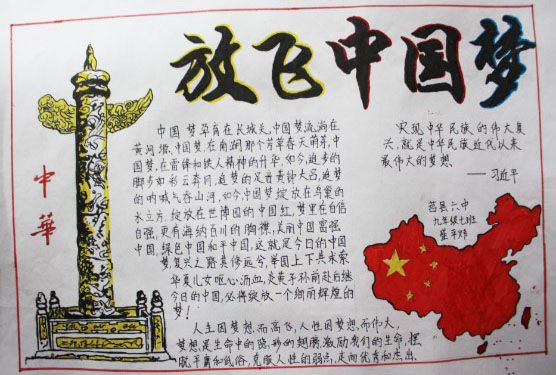 放飞中国梦
中華
中国梦孕育在长城关,中国梦流淌在
黄河
梦,在南湖那个芳菲春天萌芽,中
国梦,在雷锋和铁人精神的升华,如今,追梦的
脚步如彩云奔月,追梦的足音黄钟大吕,追梦
的呐喊气吞山河,如今中国梦绽放在鸟巢的
水立方,绽放在世博园的中国红,梦里有自信
自强,更有海纳百川的胸襟,美丽中国富强
中国,绿色中国和平中国,这就是今日的中国
梦,复兴之路其修远兮,举国上下共求索
华夏儿女呕心沥血,炎黄子孙前赴后继
今日的中国,必将绽放一个绚丽辉煌的
梦!
人生因梦想而高飞,人性因梦想而伟大,
梦想是生命中的
力,我们的生命,摆
脱平庸和低俗,克服人性的弱点,走向优秀和杰出.
实现中华民族的伟大复
兴,就是中华民族近代以来
最伟大的梦想
——习近平
莒县六中
九年级七班